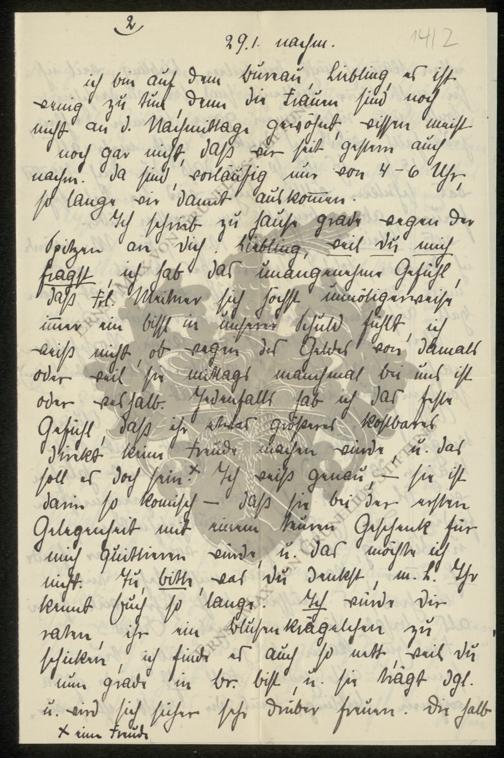 2
29.1. nachm.
14/2
ich bin auf dem Bureau, Liebling, es ist
wenig zu tun, denn die Frauen sind noch
nicht an d. Nachmittage gewöhnt, wissen meist
noch gar nicht, daß wir seit gestern auch
nachm. da sind, vorläufig nur von 4-6 Uhr,
so lange wir damit auskommen.
Ich schrieb zu Hause grade wegen der
Spitzen an dich, Liebling, weil du mich
fragst, ich hab das unangenehme Gefühl,
daß Frl. Meitner sich höchst unnötigerweise
immer ein bissl in unserer Schuld fühlt, ich
weiß nicht, ob wegen des Geldes von damals
oder weil sie mittags manchmal bei uns ist
oder weshalb. Jedenfalls hab ich das feste
Gefühl, daß ihr etwas größeres kostbares
direkt keine Freude machen würde u. das
soll es doch sein.x Ich weiß genau, – sie ist
darin so komisch – daß sie bei der ersten
Gelegenheit mit einem teuren Geschenk für
mich quittieren würde, u. das möchte ich
nicht. Tu, bitte, was du denkst, m. L. Ihr
kennt Euch so lange. Ich würde dir
raten, ihr ein Blusenkrägelchen zu
schicken, ich finde es auch so nett, weil du
nun grade in Br. bist, u. sie trägt dgl.
u. wird sich sicher sehr drüber freuen. Die halb
x eine Freude